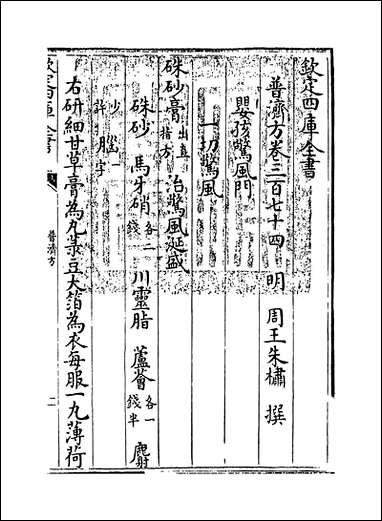 欽定四庫全書
普濟方卷三百七十四 明 周王朱橚 撰
嬰孩驚風門
一切驚風
硃砂膏出直指方 治驚風涎盛
硃砂 馬牙硝各二錢 川靈脂 蘆薈各一錢半 麝
腦一字
右研細甘草膏為丸菉豆大箔為衣每服一丸薄荷
欽定四庫全書
普濟方